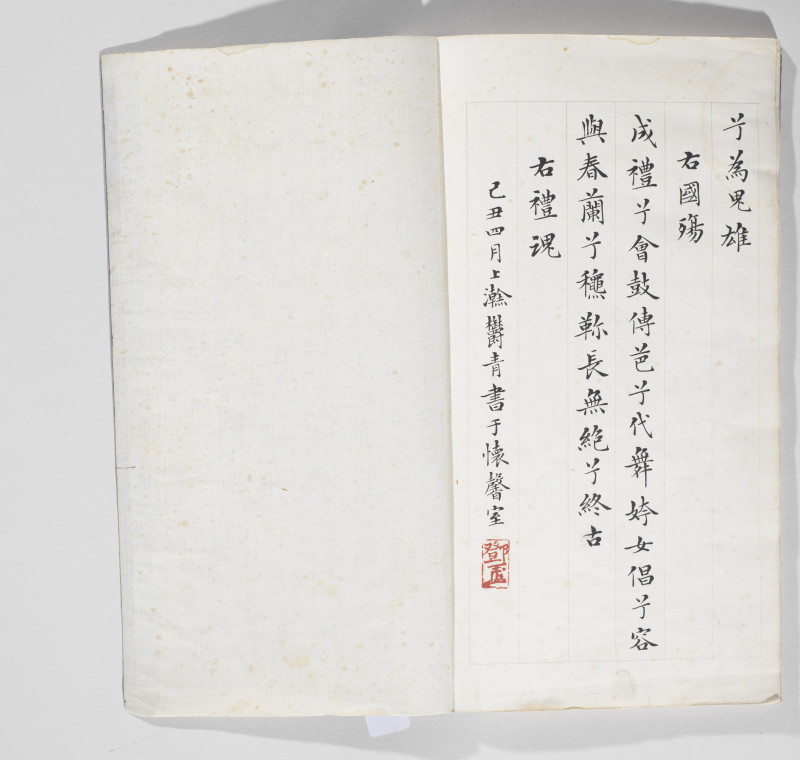 兮為鬼雄
右國殤
成禮兮會鼓傳芭兮代舞姱女倡兮容
與春蘭兮穐鞠長無絶兮終古
右禮魂
己丑四月上瀚鬱青書于懷馨室
鄧